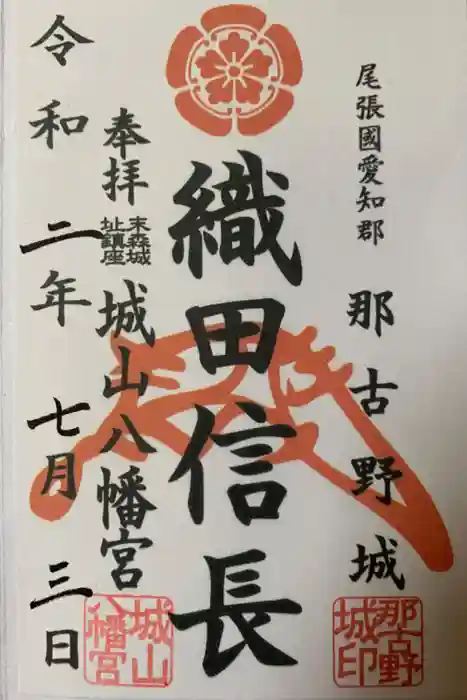 尾張國愛知郡
那古野城
織田信長
奉拝
末森城
址鎮座
城山八幡宮
令和二年七月三日
那古野
城印
城山
八幡宮